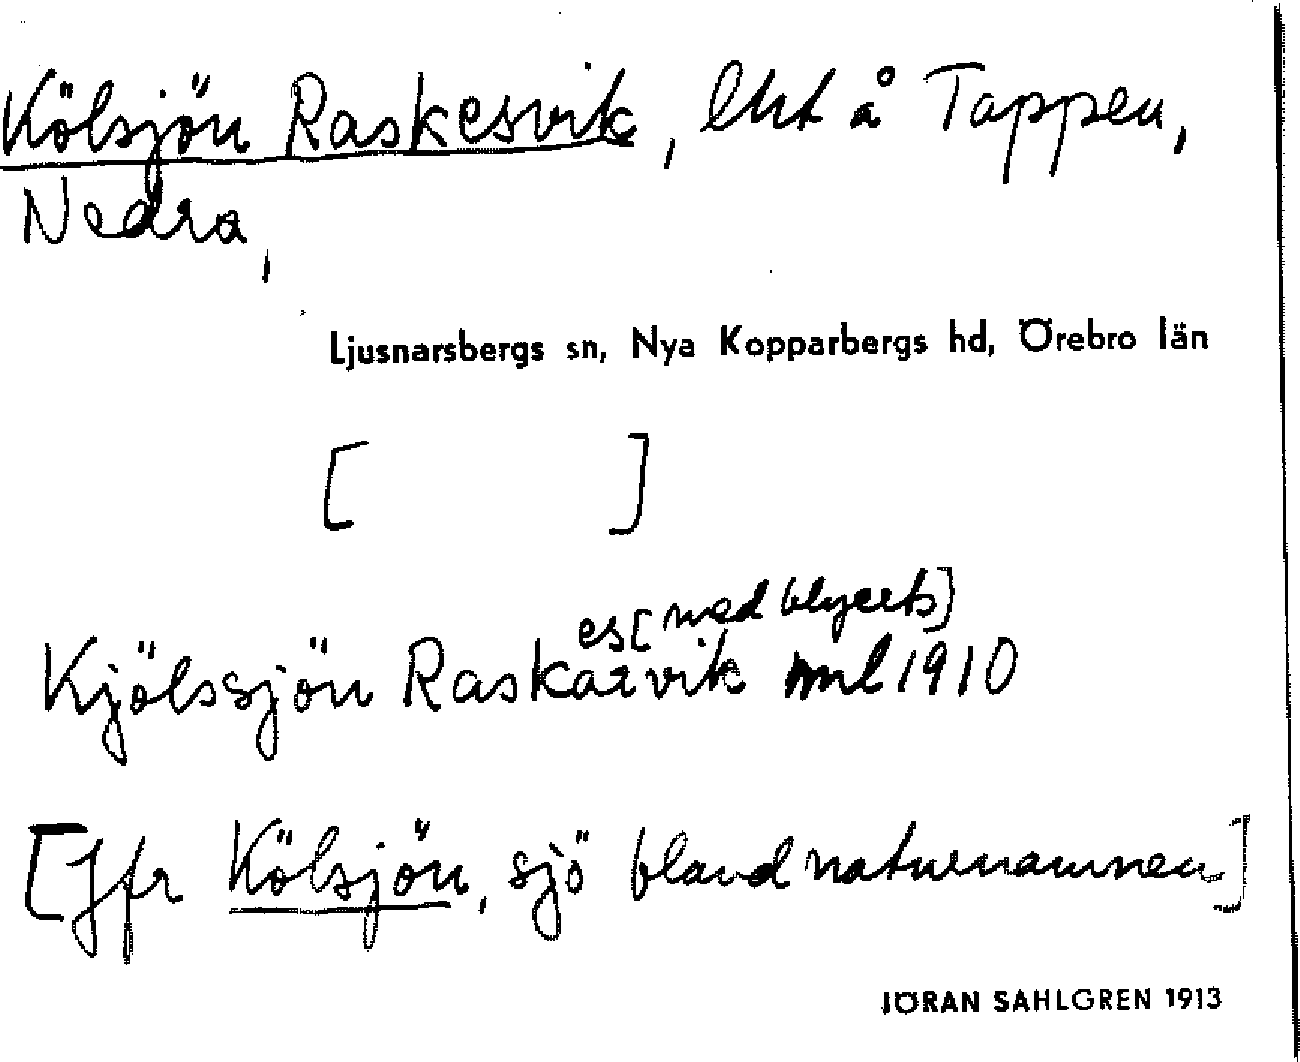 Kölsjön Raskesvik, lht å Tappen,
Nedra,
Ljusnarsbergs sn, Nya Kopparbergs hd, Örebro län
[ ]
es [med blyerts]
Kjölssjön Raskarvik 1910
[Jfr Kölsjön, sjö bland naturnamnen]
JÖRAN SAHLGREN 1913